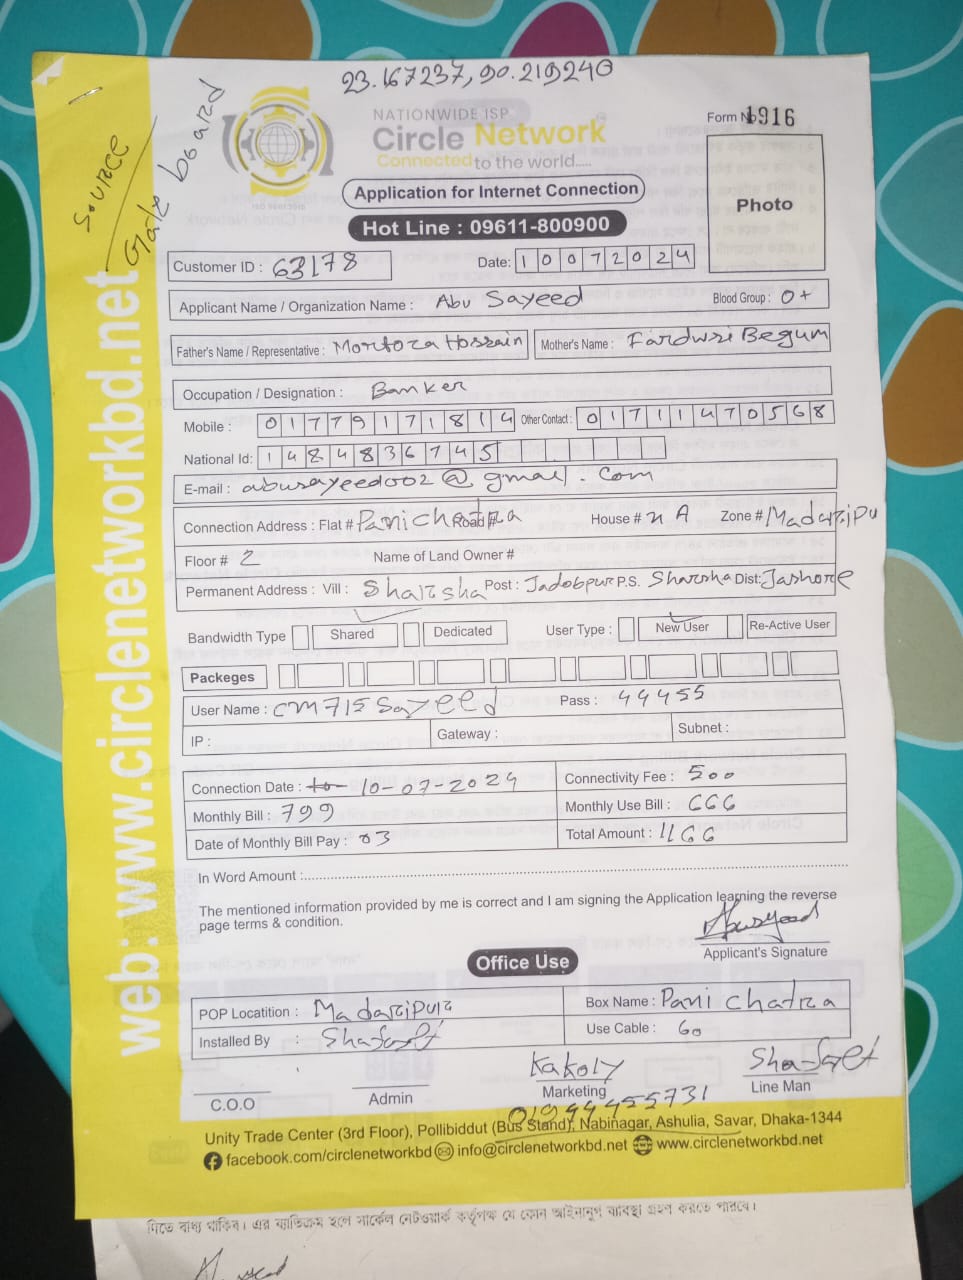 23.167237, 90.219240
source
Gate board
NATIONWIDE ISP
Circle Network
Connected to the world.....
Form No 1916
Application for Internet Connection
Photo
Hot Line : 09611-800900
Customer ID : 63178
Date: 10072024
Applicant Name / Organization Name : Abu Sayeed
Blood Group : O+
Father's Name / Representative : Mortoza Hossain
Mother's Name : Fardwsi Begum
Occupation / Designation : Banker
Mobile : 01779171814 Other Contact : 01711470568
National Id: 1484836745
E-mail : abusayeed002@gmail.com
Connection Address : Flat # Panichatra Road # House # n A Zone # Madaripu
Floor # 2 Name of Land Owner #
Permanent Address : Vill : Sharsha Post : Jadobpur P.S. Sharsha Dist: Jashore
Bandwidth Type Shared Dedicated User Type : New User Re-Active User
Packeges
User Name : cm715sayeed Pass : 44455
IP : Gateway : Subnet :
Connection Date : 10-07-2024 Connectivity Fee : 500
Monthly Bill : 799 Monthly Use Bill : 666
Date of Monthly Bill Pay : 03 Total Amount : 1166
In Word Amount :
The mentioned information provided by me is correct and I am signing the Application learning the reverse
page terms & condition.
Abusayeed
Applicant's Signature
Office Use
POP Locatition : Madaripur Box Name : Panichatra
Installed By : Use Cable : 60
Kakoly
C.O.O Admin Marketing Line Man
01944455731
Unity Trade Center (3rd Floor), Pollibiddut (Bus Stand), Nabinagar, Ashulia, Savar, Dhaka-1344
facebook.com/circlenetworkbd info@circlenetworkbd.net www.circlenetworkbd.net
web: www.circlenetworkbd.net
দিতে বাধ্য থাকিব। এর ব্যতিক্রম হলে সার্কেল নেটওয়ার্ক কর্তৃপক্ষ যে কোন আইনানুগ ব্যবস্থা গ্রহণ করতে পারবে।